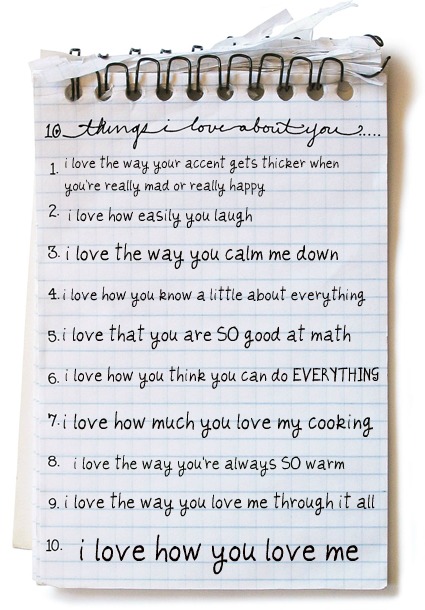 10 things i love about you.....
1. i love the way your accent gets thicker when
you're really mad or really happy
2. i love how easily you laugh
3. i love the way you calm me down
4. i love how you know a little about everything
5. i love that you are SO good at math
6. i love how you think you can do EVERYTHING
7. i love how much you love my cooking
8. i love the way you're always SO warm
9. i love the way you love me through it all
10. i love how you love me